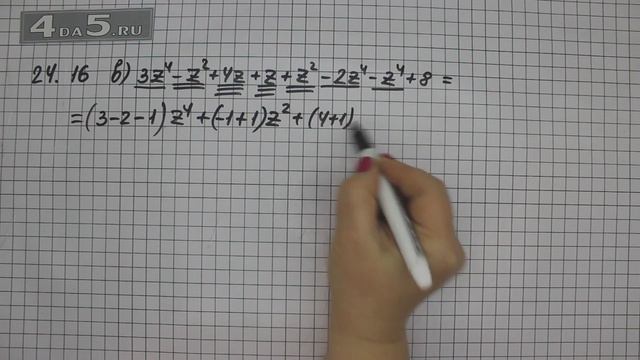 4DA5.RU
24. 16 в) 3z⁴ - z² + 4z + z + z² - 2z⁴ - z⁴ + 8 =
= (3 - 2 - 1) z⁴ + (-1 + 1) z² + (4 + 1)